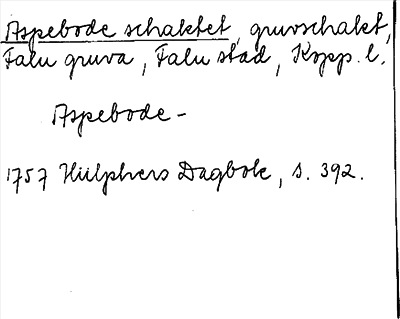 Aspebode schaktet, gruvschakt,
Falu gruva, Falu stad, Kopp. l.
Aspebode -
1757 Hülphers Dagbok, s. 392.